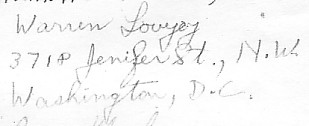 Warren Lovejoy
3718 Jenifer St., N.W.
Washington, D.C.